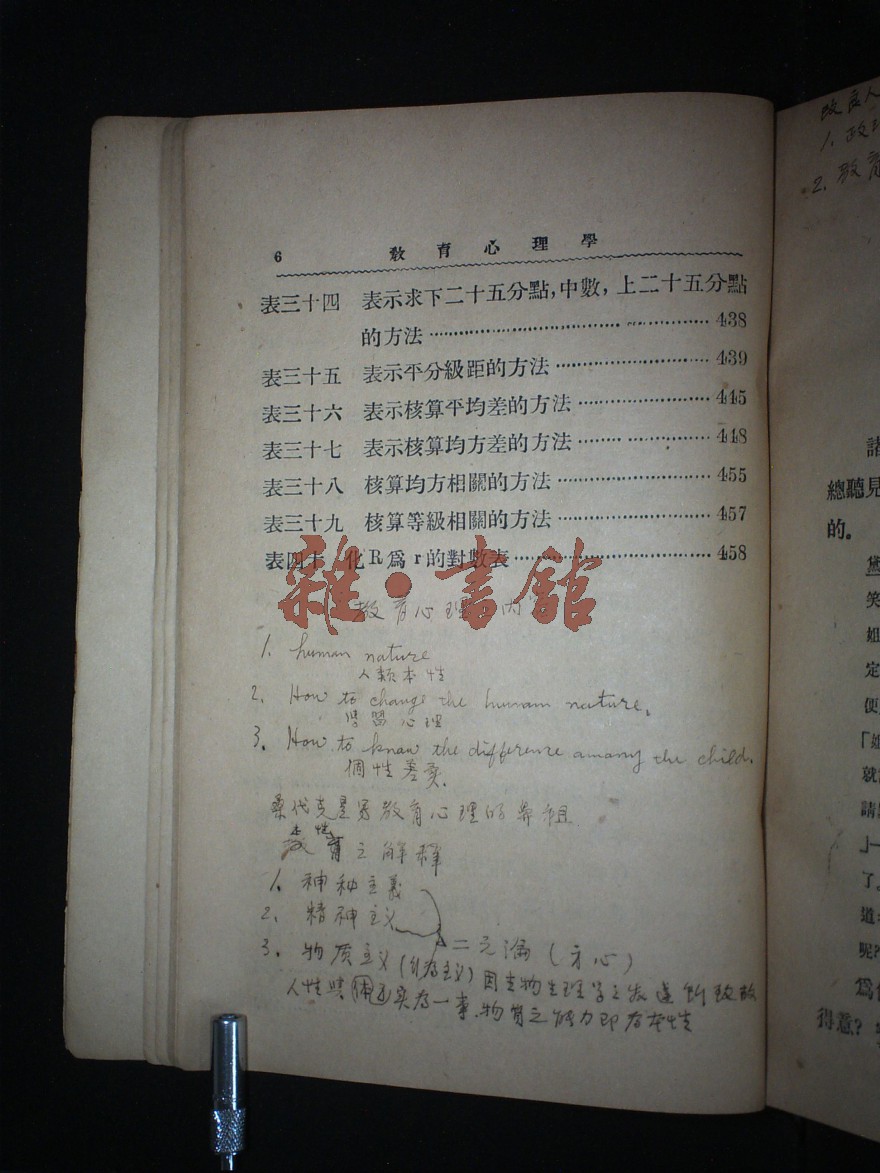 6 教育心理學
表三十四 表示求下二十五分點,中數,上二十五分點
的方法 438
表三十五 表示平分級距的方法 439
表三十六 表示核算平均差的方法 445
表三十七 表示核算均方差的方法 448
表三十八 核算均方相關的方法 455
表三十九 核算等級相關的方法 457
表四十 化R爲r的對數表 458
雜·書館
教育心理 內
1. human nature
人類本性
2. How to change the human nature.
學習心理
3. How to know the difference among the child.
個性差異.
桑代克是為教育心理的鼻祖
本性
之解釋
1. 神秘主義
2. 精神主义
3. 物质主义 (行為主义)
二元論 (身心)
因生物生理学之发達
人性與 实為一事.物质之能力即為本性
改良人
1. 政
2. 教育
諸
總聽見
的。
黛
笑
姐
定
便
「姐
就
請
」一
了。
道
呢?
爲
得意?